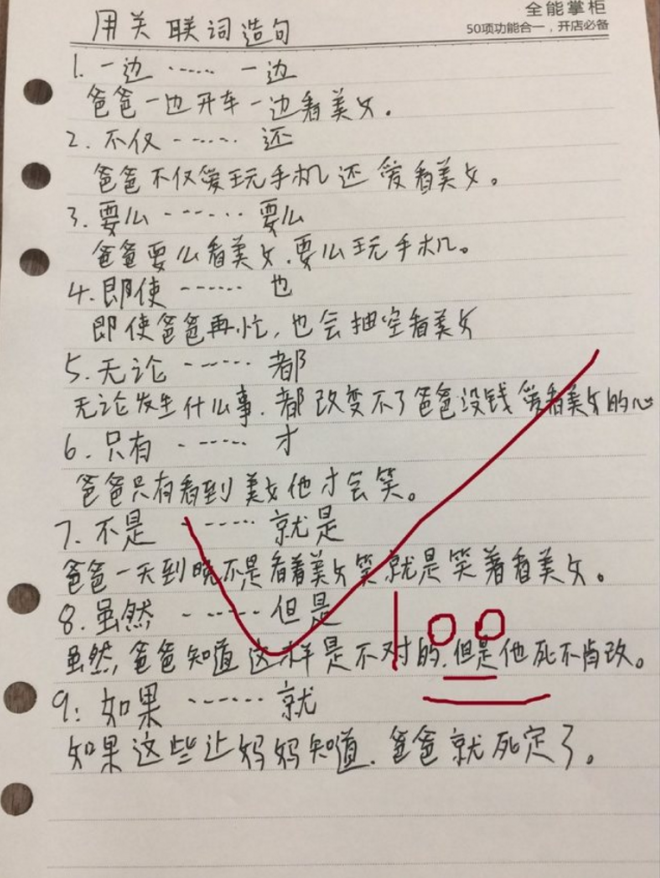 全能掌柜
50项功能合一，开店必备
用关联词造句
1. 一边 …… 一边
爸爸一边开车一边看美女。
2. 不仅 …… 还
爸爸不仅爱玩手机还爱看美女。
3. 要么 …… 要么
爸爸要么看美女.要么玩手机。
4. 即使 …… 也
即使爸爸再忙，也会抽空看美女
5. 无论 …… 都
无论发生什么事.都改变不了爸爸没钱爱看美女的心
6. 只有 …… 才
爸爸只有看到美女他才会笑。
7. 不是 …… 就是
爸爸一天到晚不是看着美女笑就是笑着看美女。
8. 虽然 …… 但是
虽然,爸爸知道这样是不对的.但是他死不肯改。
9: 如果 …… 就
如果这些让妈妈知道.爸爸就死定了。
100